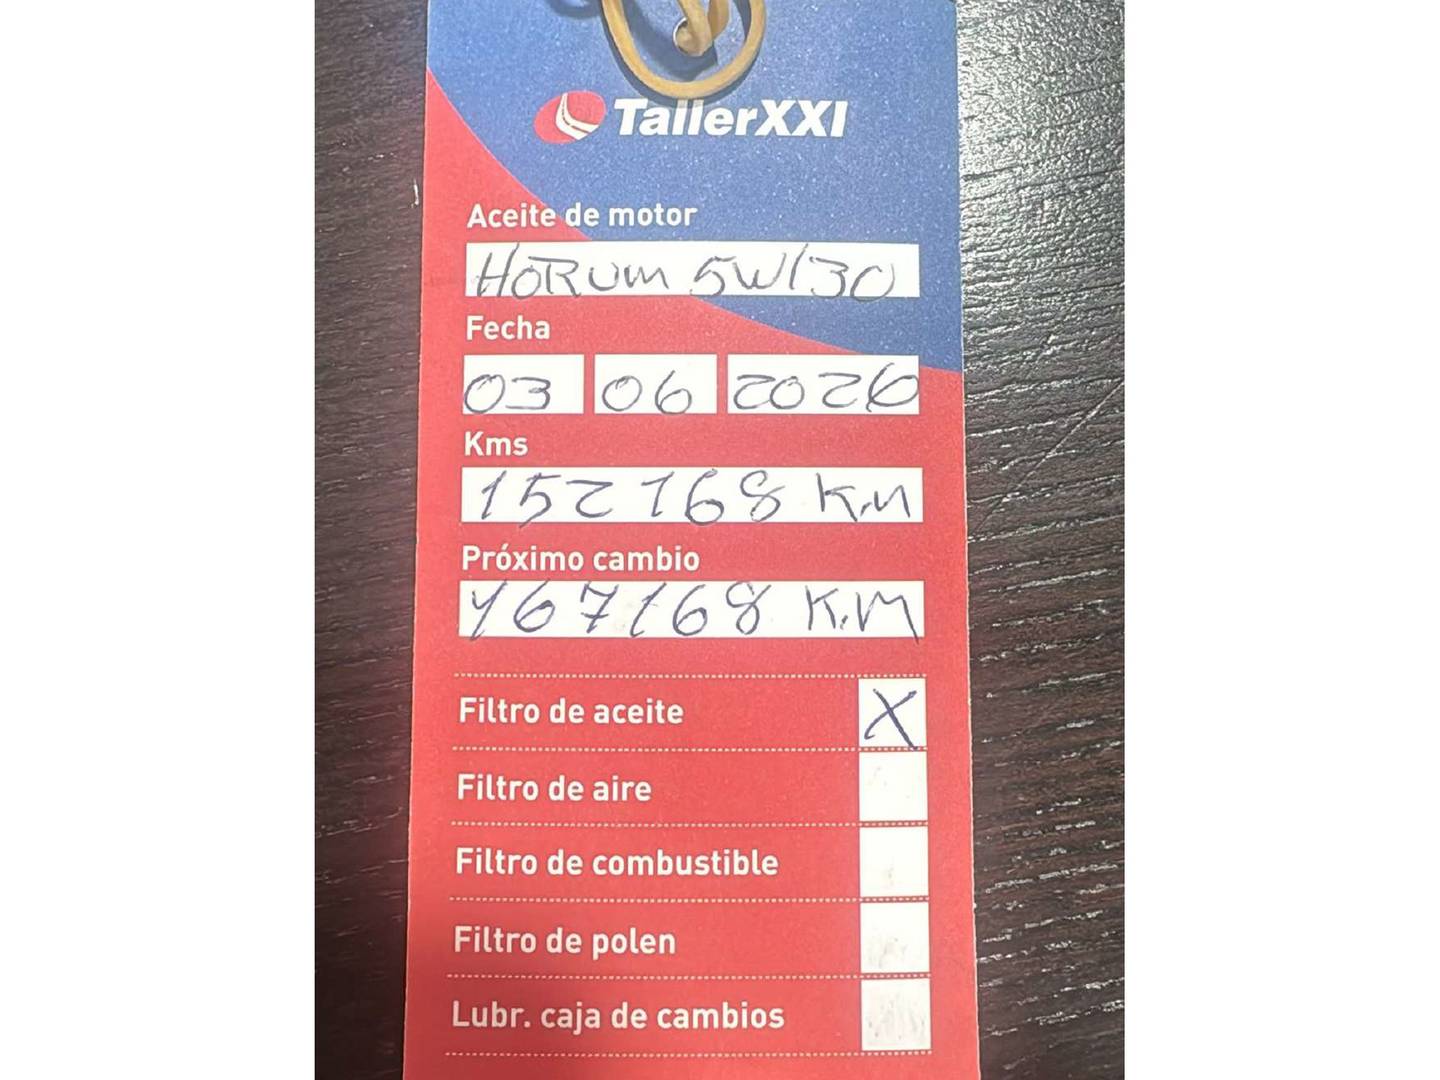 TallerXXI
Aceite de motor
HORUM 5W/30
Fecha
03 06 2026
Kms
152168 K.M
Próximo cambio
167168 K.M
Filtro de aceite X
Filtro de aire
Filtro de combustible
Filtro de polen
Lubr. caja de cambios